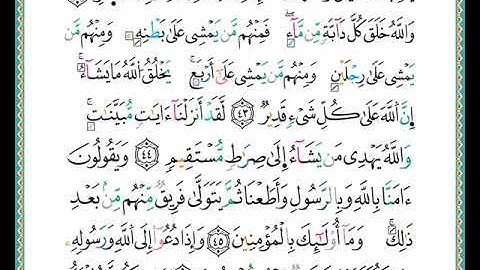 وَاللَّهُ خَلَقَ كُلَّ دَآبَّةٍ مِّن مَّآءٍ ۖ فَمِنْهُم مَّن يَمْشِى عَلَىٰ بَطْنِهِ وَمِنْهُم مَّن
يَمْشِى عَلَىٰ رِجْلَيْنِ وَمِنْهُم مَّن يَمْشِى عَلَىٰٓ أَرْبَعٍ ۚ يَخْلُقُ اللَّهُ مَا يَشَآءُ ۚ
إِنَّ اللَّهَ عَلَىٰ كُلِّ شَىْءٍ قَدِيرٌ ٤٣ لَّقَدْ أَنزَلْنَآ ءَايَٰتٍ مُّبَيَّنَٰتٍ ۚ
وَاللَّهُ يَهْدِى مَن يَشَآءُ إِلَىٰ صِرَٰطٍ مُّسْتَقِيمٍ ٤٤ وَيَقُولُونَ
ءَامَنَّا بِاللَّهِ وَبِالرَّسُولِ وَأَطَعْنَا ثُمَّ يَتَوَلَّىٰ فَرِيقٌ مِّنْهُم مِّنۢ بَعْدِ
ذَٰلِكَ ۚ وَمَآ أُو۟لَٰٓئِكَ بِالْمُؤْمِنِينَ ٤٥ وَإِذَا دُعُوٓا۟ إِلَى اللَّهِ وَرَسُولِهِ